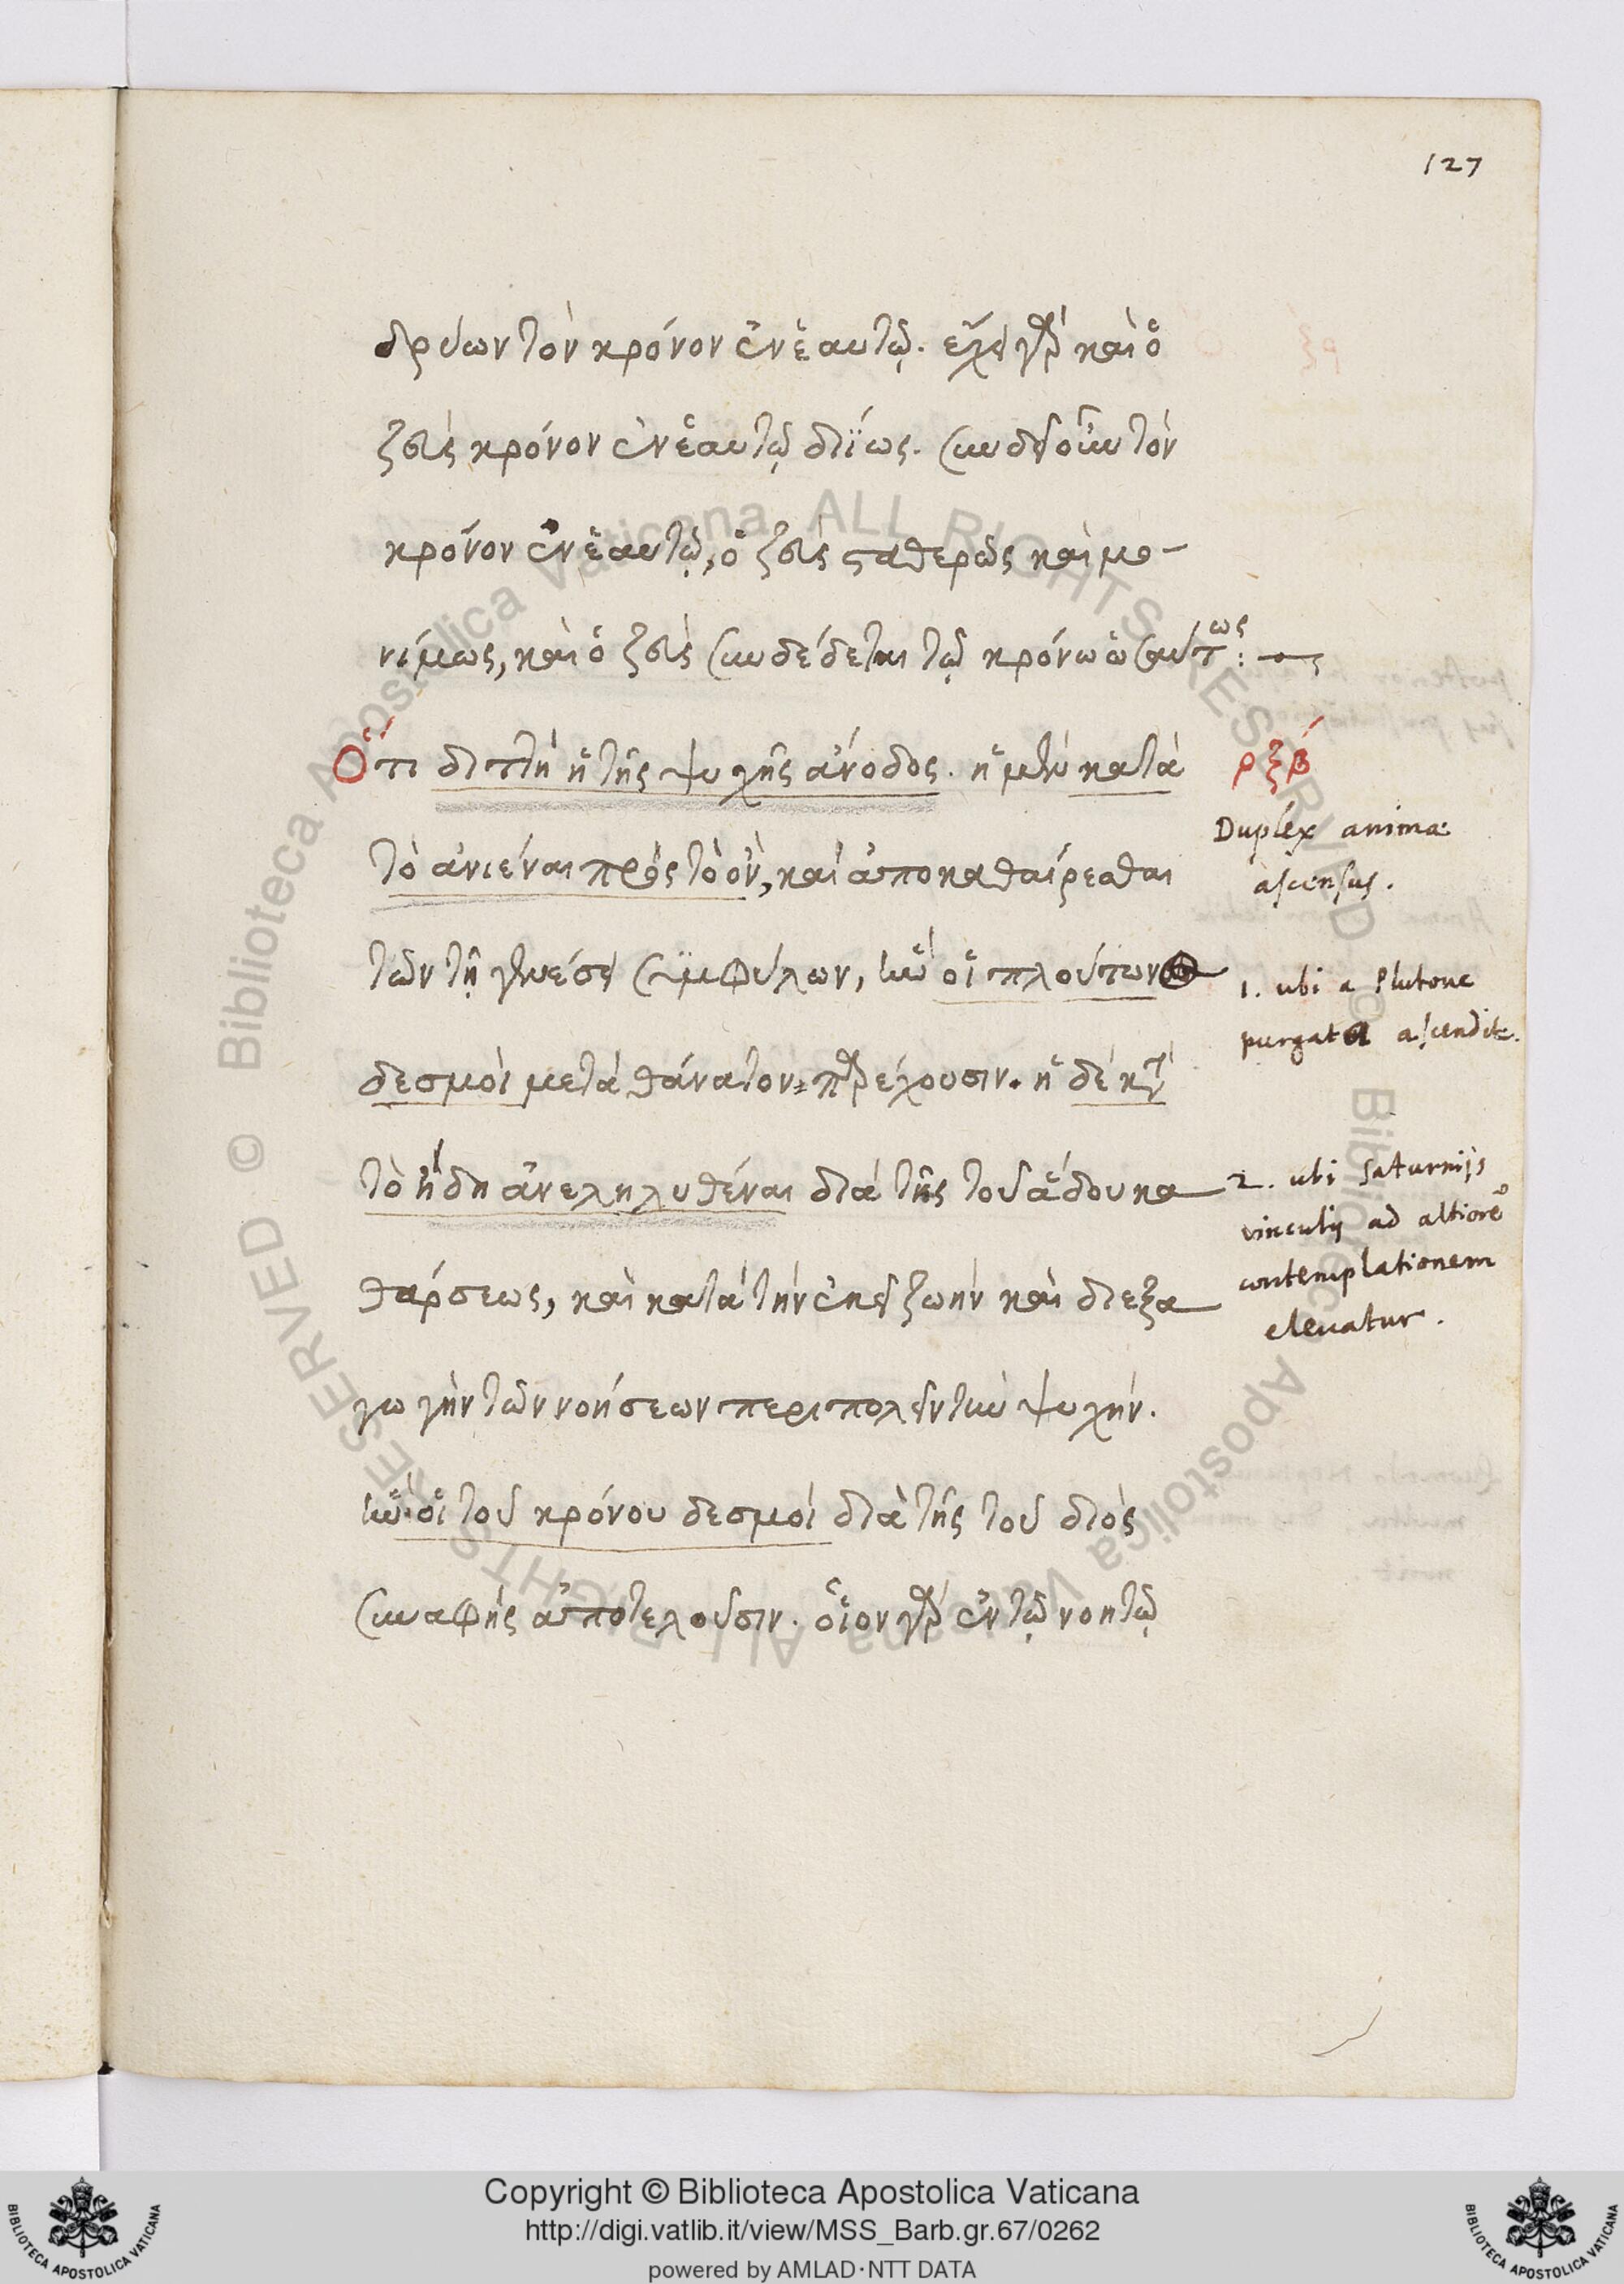 127
δρύων τὸν κρόνον ἐν ἑαυτῷ. εἶχε γὰρ καὶ ὁ
ζεὺς κρόνον ἐν ἑαυτῷ διΐως. συνδεῖ οὖν τὸν
κρόνον ἐν ἑαυτῷ, ὁ ζεὺς σταθερῶς καὶ μο-
νίμως, καὶ ὁ ζεὺς συνδέδεται τῷ κρόνω ὡσαύτως:
Ὅτι διττὴ ἡ τῆς ψυχῆς ἄνοδος. ἡ μὲν κατὰ
ρξβ́
Duplex animæ
ascensus.
τὸ ἀνιέναι πρὸς τὸ ὂν, καὶ ἀποκαθαίρεσθαι
τῶν τῇ γενέσει συμφύλων, ἣν οἱ πλούτων
1. ubi a Plutone
purgata ascendit.
δεσμοὶ μετὰ θάνατον παρέχουσιν. ἡ δὲ κατὰ
τὸ ἤδη ἀνεληλυθέναι διὰ τῆς τοῦ ἅδου κα
2. ubi Saturnijs
vinculis ad altiorē
contemplationem
eleuatur.
θάρσεως, καὶ κατὰ τὴν ἐκεῖ ζωὴν καὶ διεξα
γωγὴν τῶν νοήσεων περιπολεῖν τὴν ψυχήν.
ἣν οἱ τοῦ κρόνου δεσμοὶ διὰ τῆς τοῦ διὸς
συναφῆς ἀποτελοῦσιν. οἷον γὰρ ἐν τῷ νοητῷ
Copyright © Biblioteca Apostolica Vaticana
http://digi.vatlib.it/view/MSS_Barb.gr.67/0262
powered by AMLAD·NTT DATA